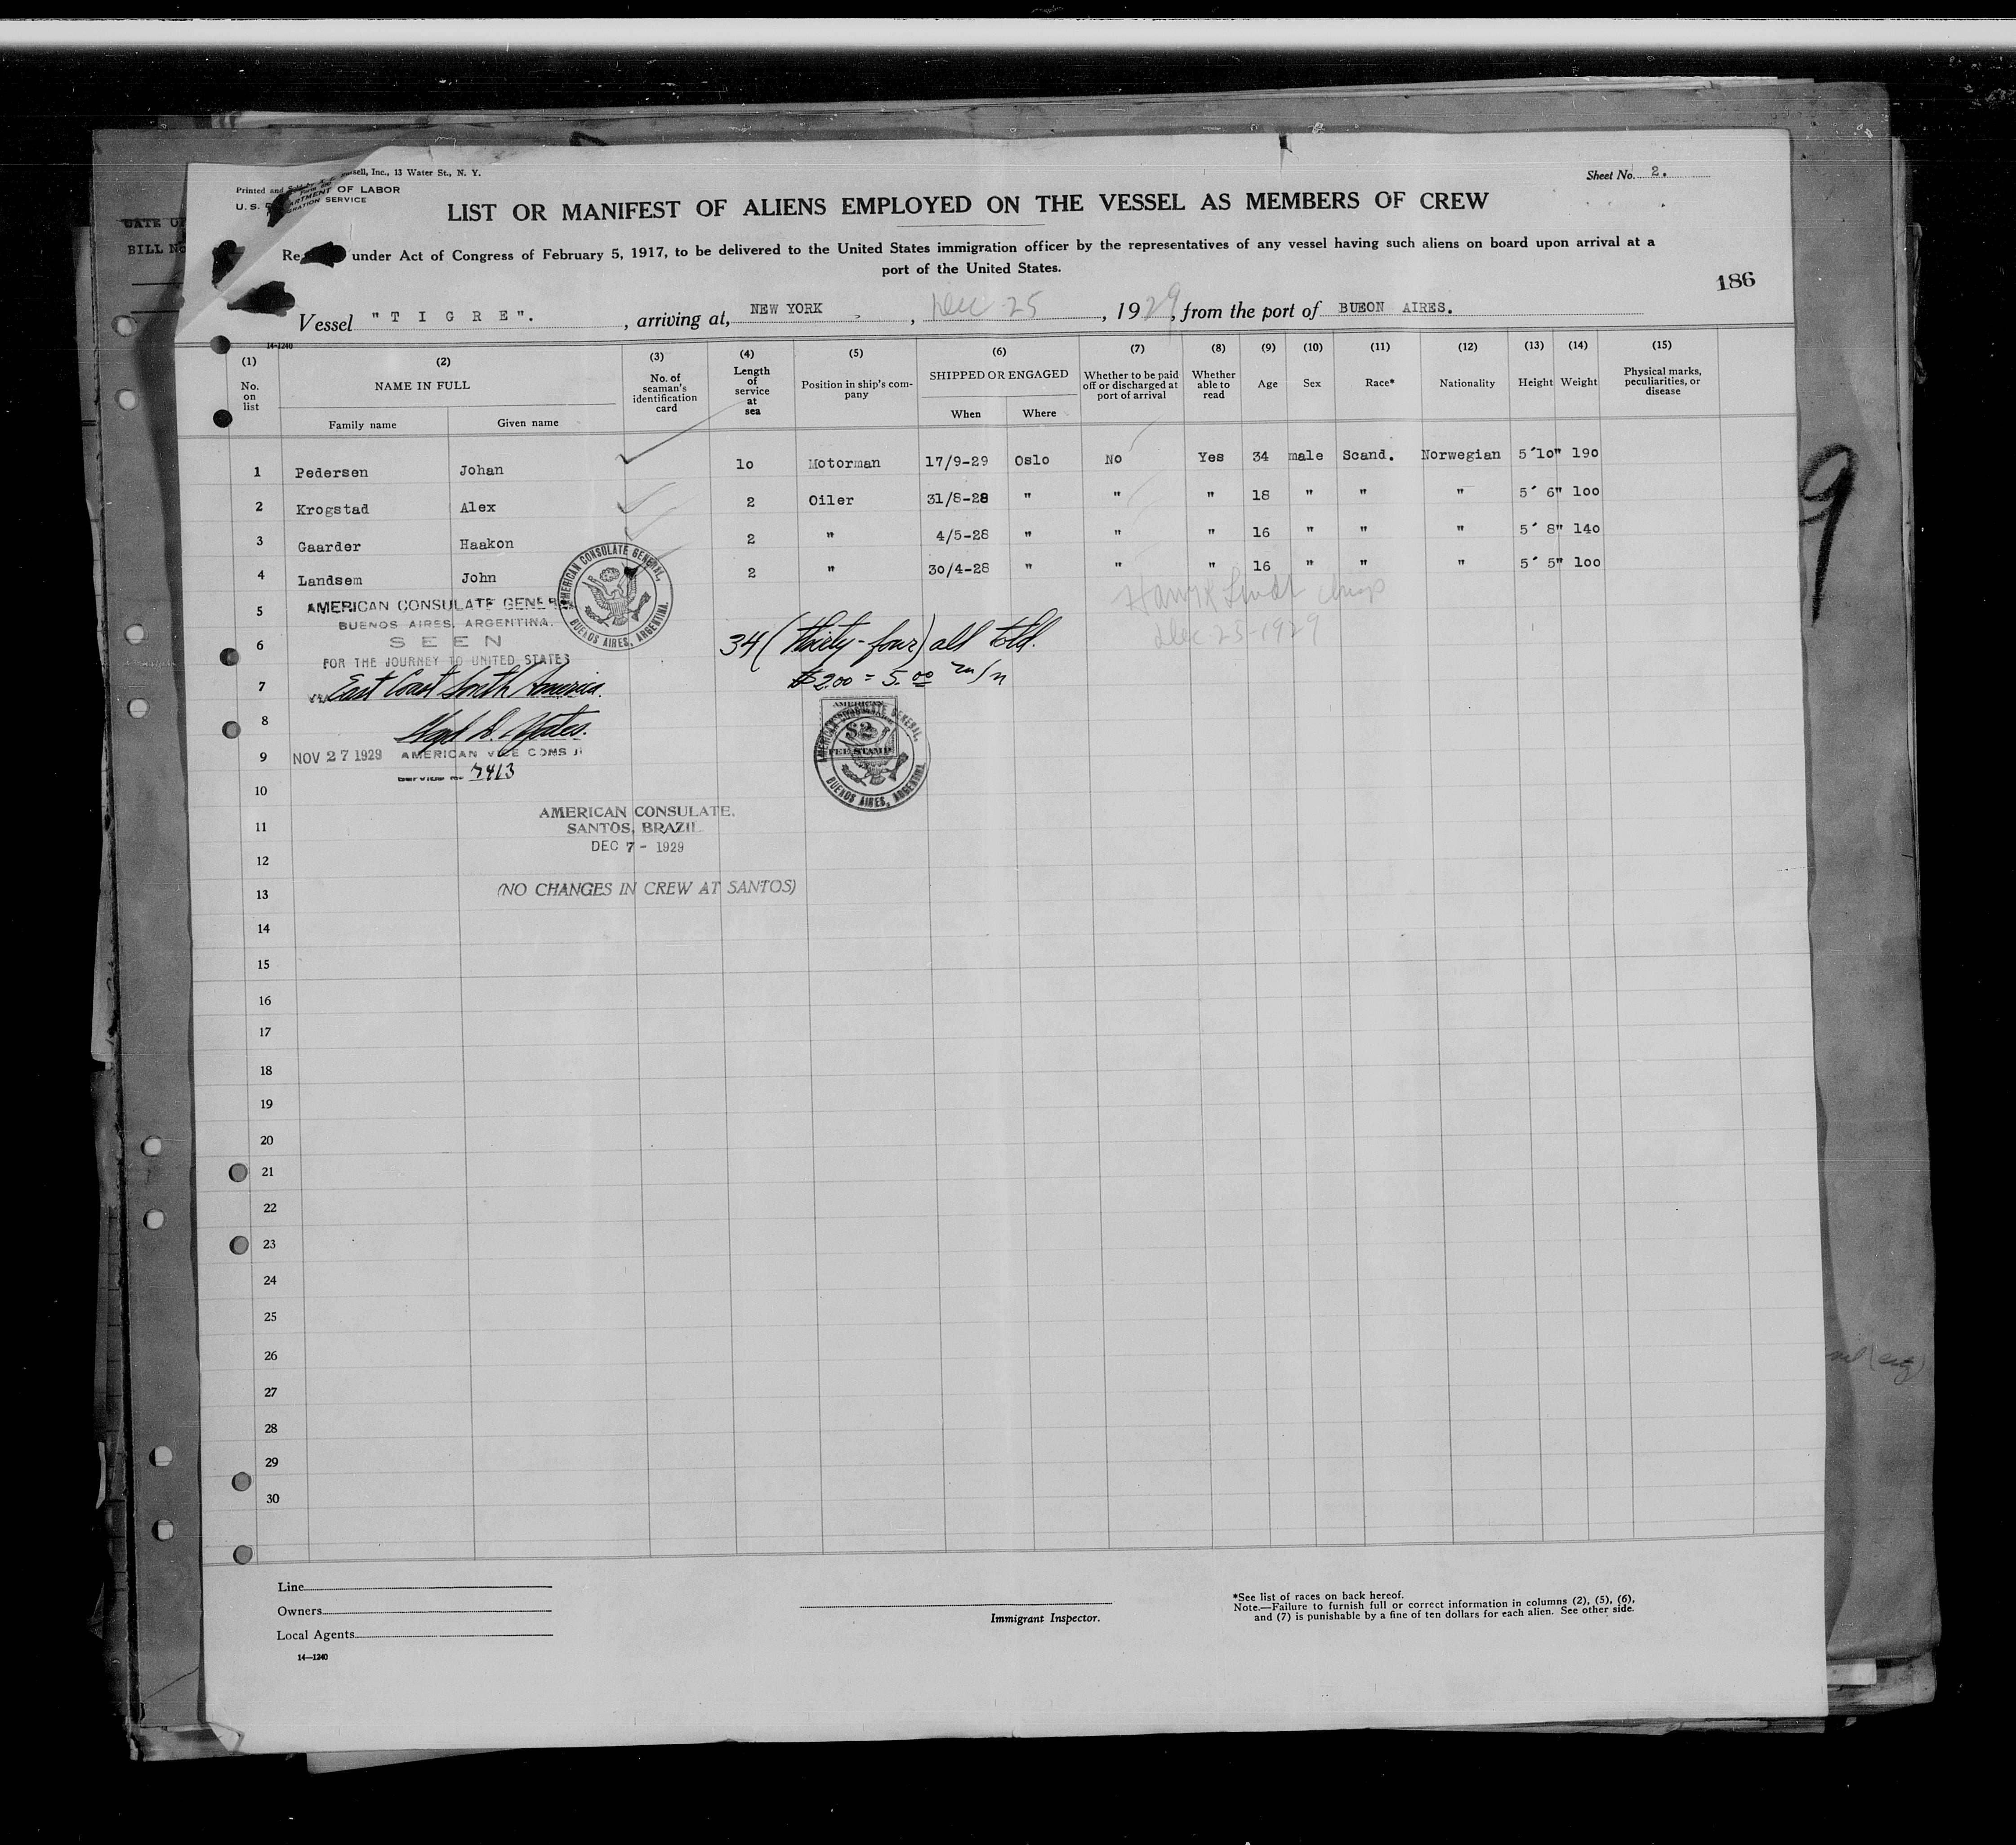 DATE OF
BILL NO
Inc., 13 Water St., N. Y.
Printed and
OF LABOR
U. S.
SERVICE
Sheet No. 2.
LIST OR MANIFEST OF ALIENS EMPLOYED ON THE VESSEL AS MEMBERS OF CREW
under Act of Congress of February 5, 1917, to be delivered to the United States immigration officer by the representatives of any vessel having such aliens on board upon arrival at a
port of the United States.
186
Vessel " T I G R E ". , arriving at, NEW YORK , Dec 25 , 1929, from the port of BUEON AIRES.
14-1240
(1) (2) (3) (4) (5) (6) (7) (8) (9) (10) (11) (12) (13) (14) (15)
No. on list NAME IN FULL No. of seaman's identification card Length of service at sea Position in ship's company SHIPPED OR ENGAGED Whether to be paid off or discharged at port of arrival Whether able to read Age Sex Race* Nationality Height Weight Physical marks, peculiarities, or disease
Family name Given name When Where
1 Pedersen Johan 1o Motorman 17/9-29 Oslo No Yes 34 male Scand. Norwegian 5'1o" 19o
2 Krogstad Alex 2 Oiler 31/8-28 " " " 18 " " " 5' 6" 1oo
3 Gaarder Haakon 2 " 4/5-28 " " " 16 " " " 5' 8" 14o
4 Landsem John 2 " 3o/4-28 " " " 16 " " " 5' 5" 1oo
5 AMERICAN CONSULATE GENER
BUENOS AIRES, ARGENTINA.
AMERICAN CONSULATE GENERAL, BUENOS AIRES, ARGENTINA.
Dec 25-1929
6 SEEN
34 (thirty-four) all told.
FOR THE JOURNEY TO UNITED STATES
7 East Coast South America.
$2.00 = 5.00 m/n
8
AMERICAN
$2
FEE STAMP
AMERICAN CONSULATE GENERAL, BUENOS AIRES, ARGENTINA
9 NOV 27 1929 AMERICAN VICE CONS
Service No 7413
10
AMERICAN CONSULATE.
11 SANTOS, BRAZIL
DEC 7 - 1929
12
13 (NO CHANGES IN CREW AT SANTOS)
14
15
16
17
18
19
20
21
22
23
24
25
26
27
28
29
30
9
Line
Owners
Local Agents
14—1240
Immigrant Inspector.
*See list of races on back hereof.
Note.—Failure to furnish full or correct information in columns (2), (5), (6),
and (7) is punishable by a fine of ten dollars for each alien. See other side.